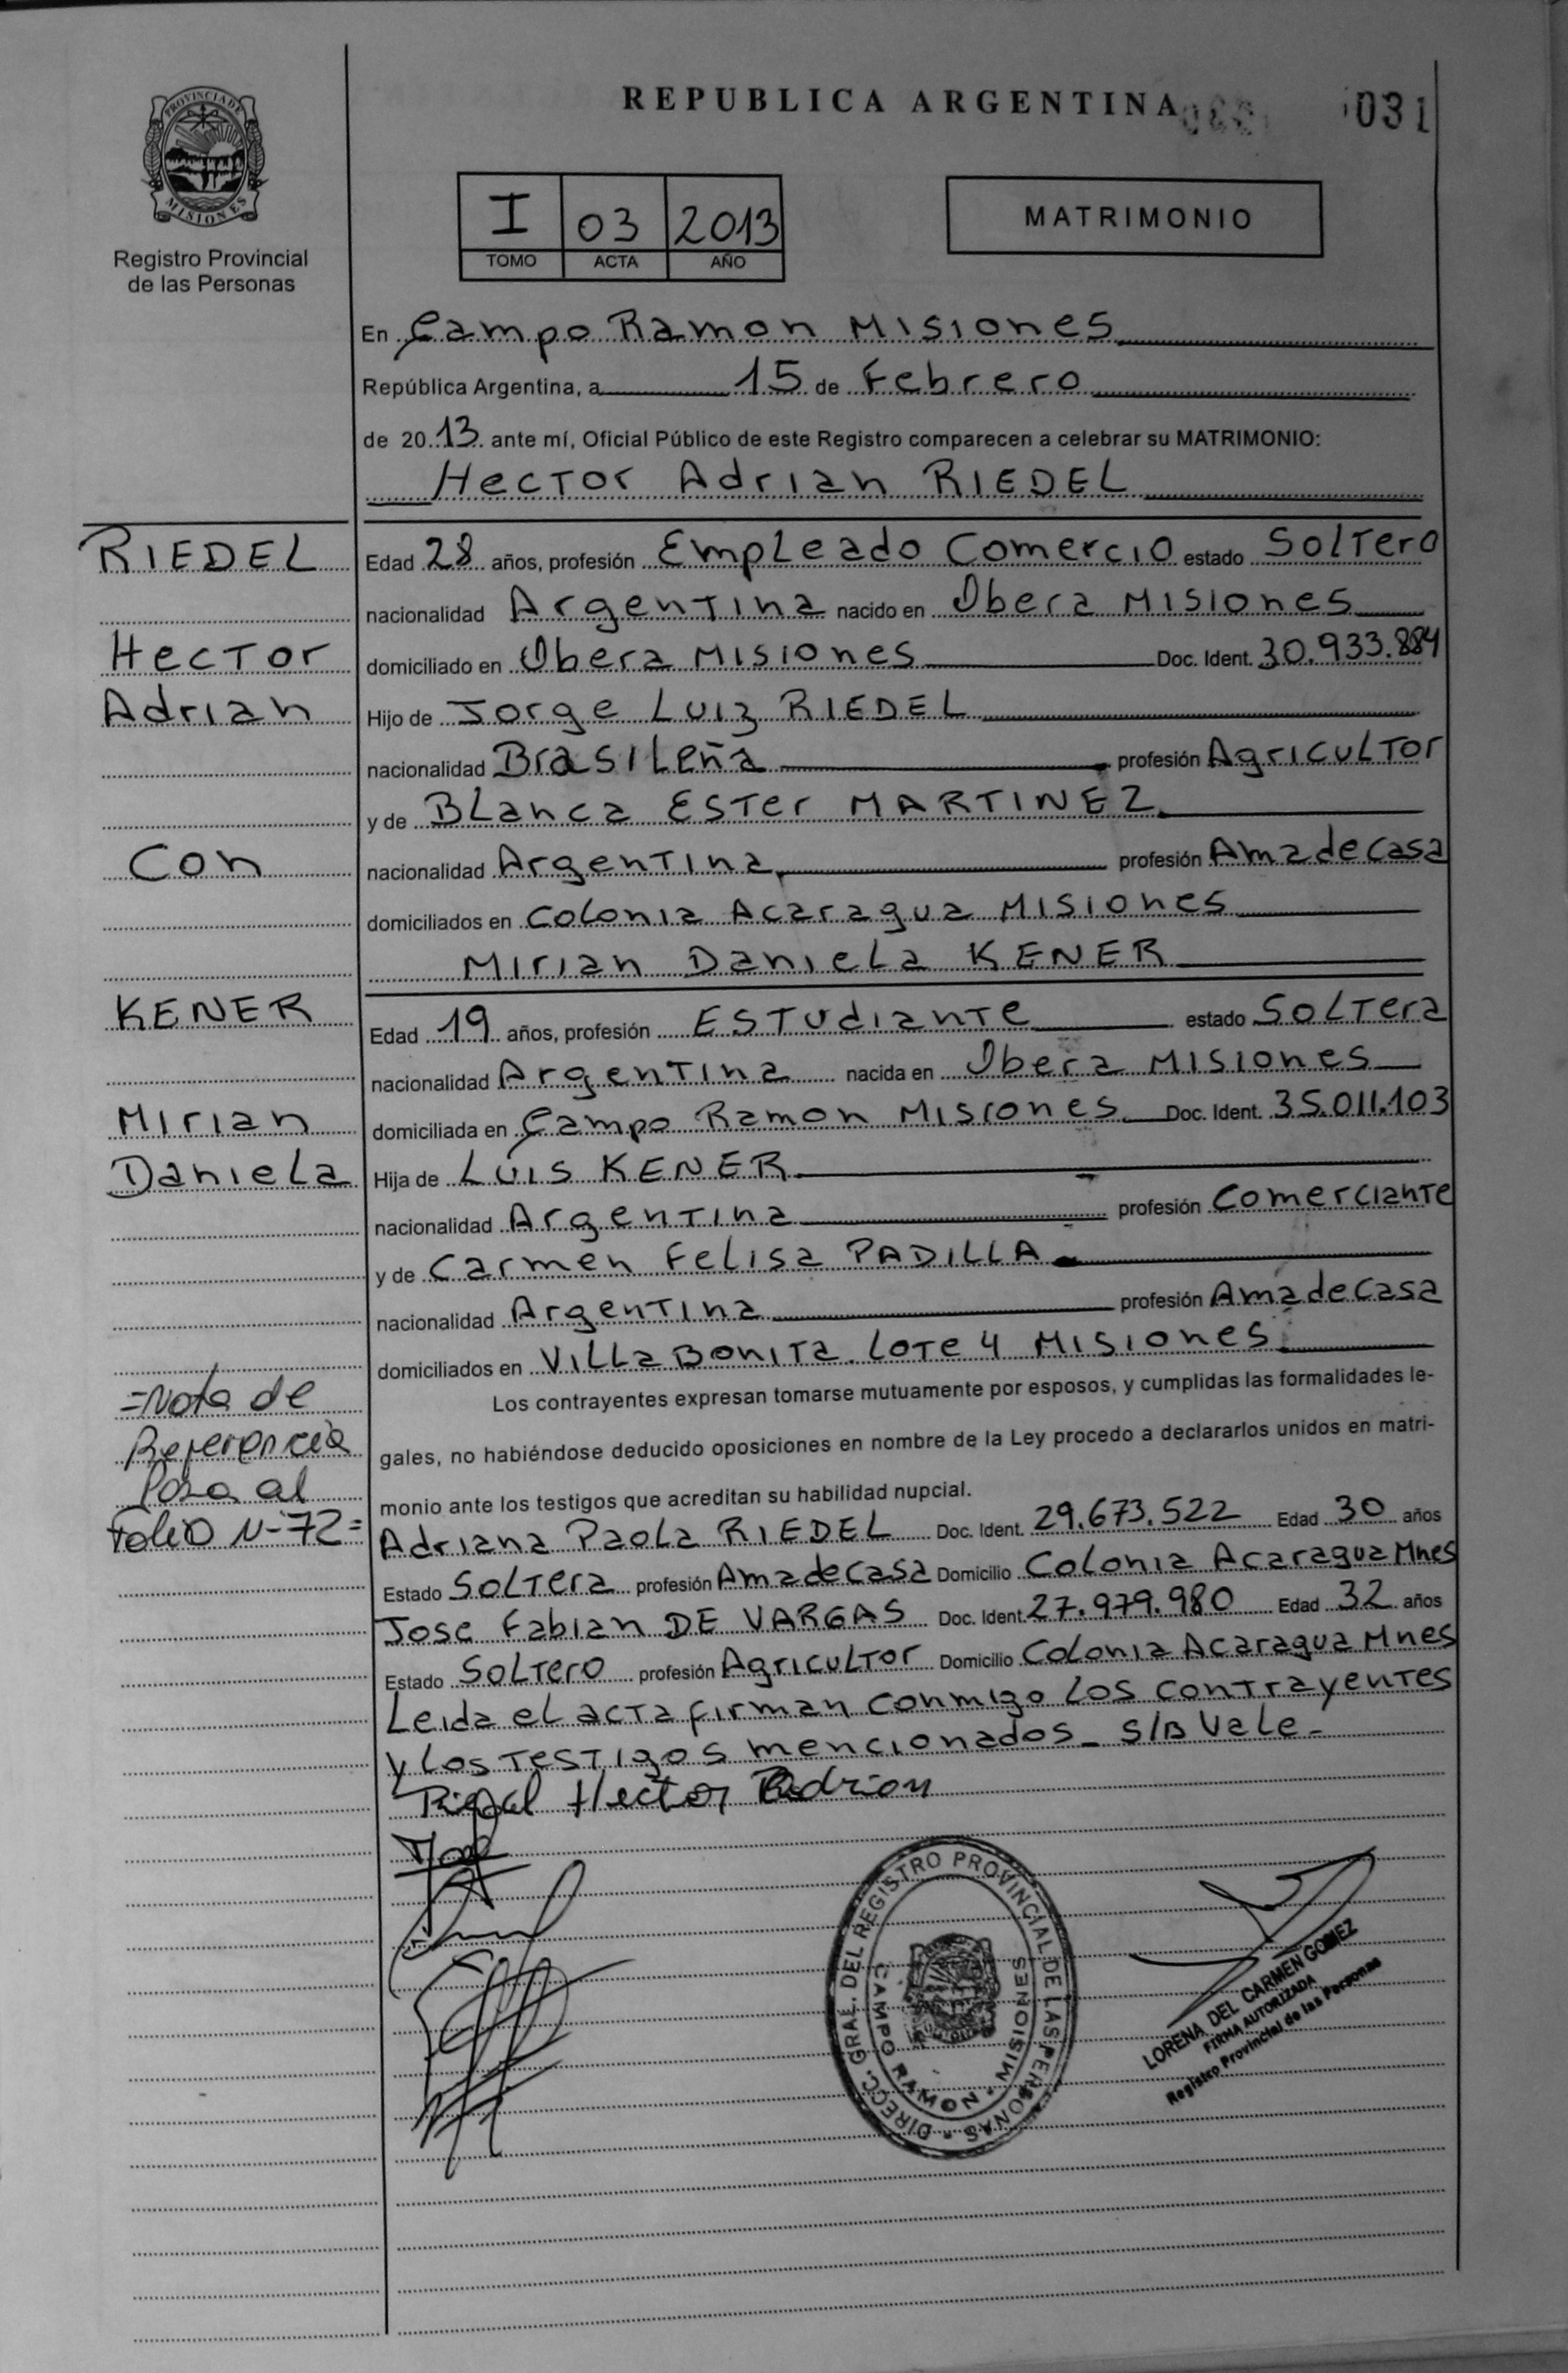 REPUBLICA ARGENTINA
031
PROVINCIA DE
MISIONES
Registro Provincial
de las Personas
I 03 2013
TOMO ACTA AÑO
MATRIMONIO
En Campo Ramon Misiones
República Argentina, a 15 de Febrero
de 2013 ante mí, Oficial Público de este Registro comparecen a celebrar su MATRIMONIO:
Hector Adrian RIEDEL
RIEDEL
Hector
Adrian
Con
KENER
Mirian
Daniela
=Nota de
Referencia
Pasa al
Folio N-72=
Edad 28 años, profesión Empleado Comercio estado Soltero
nacionalidad Argentina nacido en Obera Misiones
domiciliado en Obera Misiones Doc. Ident. 30.933.884
Hijo de Jorge Luiz RIEDEL
nacionalidad Brasileña profesión Agricultor
y de Blanca Ester MARTINEZ
nacionalidad Argentina profesión Ama de casa
domiciliados en Colonia Acaragua Misiones
Mirian Daniela KENER
Edad 19 años, profesión Estudiante estado Soltera
nacionalidad Argentina nacida en Obera Misiones
domiciliada en Campo Ramon Misiones Doc. Ident. 35.011.103
Hija de Luis KENER
nacionalidad Argentina profesión Comerciante
y de Carmen Felisa PADILLA
nacionalidad Argentina profesión Ama de casa
domiciliados en Villa Bonita. Lote 4 Misiones
Los contrayentes expresan tomarse mutuamente por esposos, y cumplidas las formalidades le-
gales, no habiéndose deducido oposiciones en nombre de la Ley procedo a declararlos unidos en matri-
monio ante los testigos que acreditan su habilidad nupcial.
Adriana Paola RIEDEL Doc. Ident. 29.673.522 Edad 30 años
Estado Soltera profesión Ama de casa Domicilio Colonia Acaragua Mnes
Jose Fabian DE VARGAS Doc. Ident. 27.979.980 Edad 32 años
Estado Soltero profesión Agricultor Domicilio Colonia Acaragua Mnes
Leida el acta firman conmigo los contrayentes
y los testigos mencionados_ S/B Vale-
Hector Adrian
DIRECC. GRAL. DEL REGISTRO PROVINCIAL DE LAS PERSONAS
CAMPO RAMON - MISIONES
LORENA DEL CARMEN GOMEZ
FIRMA AUTORIZADA
Registro Provincial de las Personas